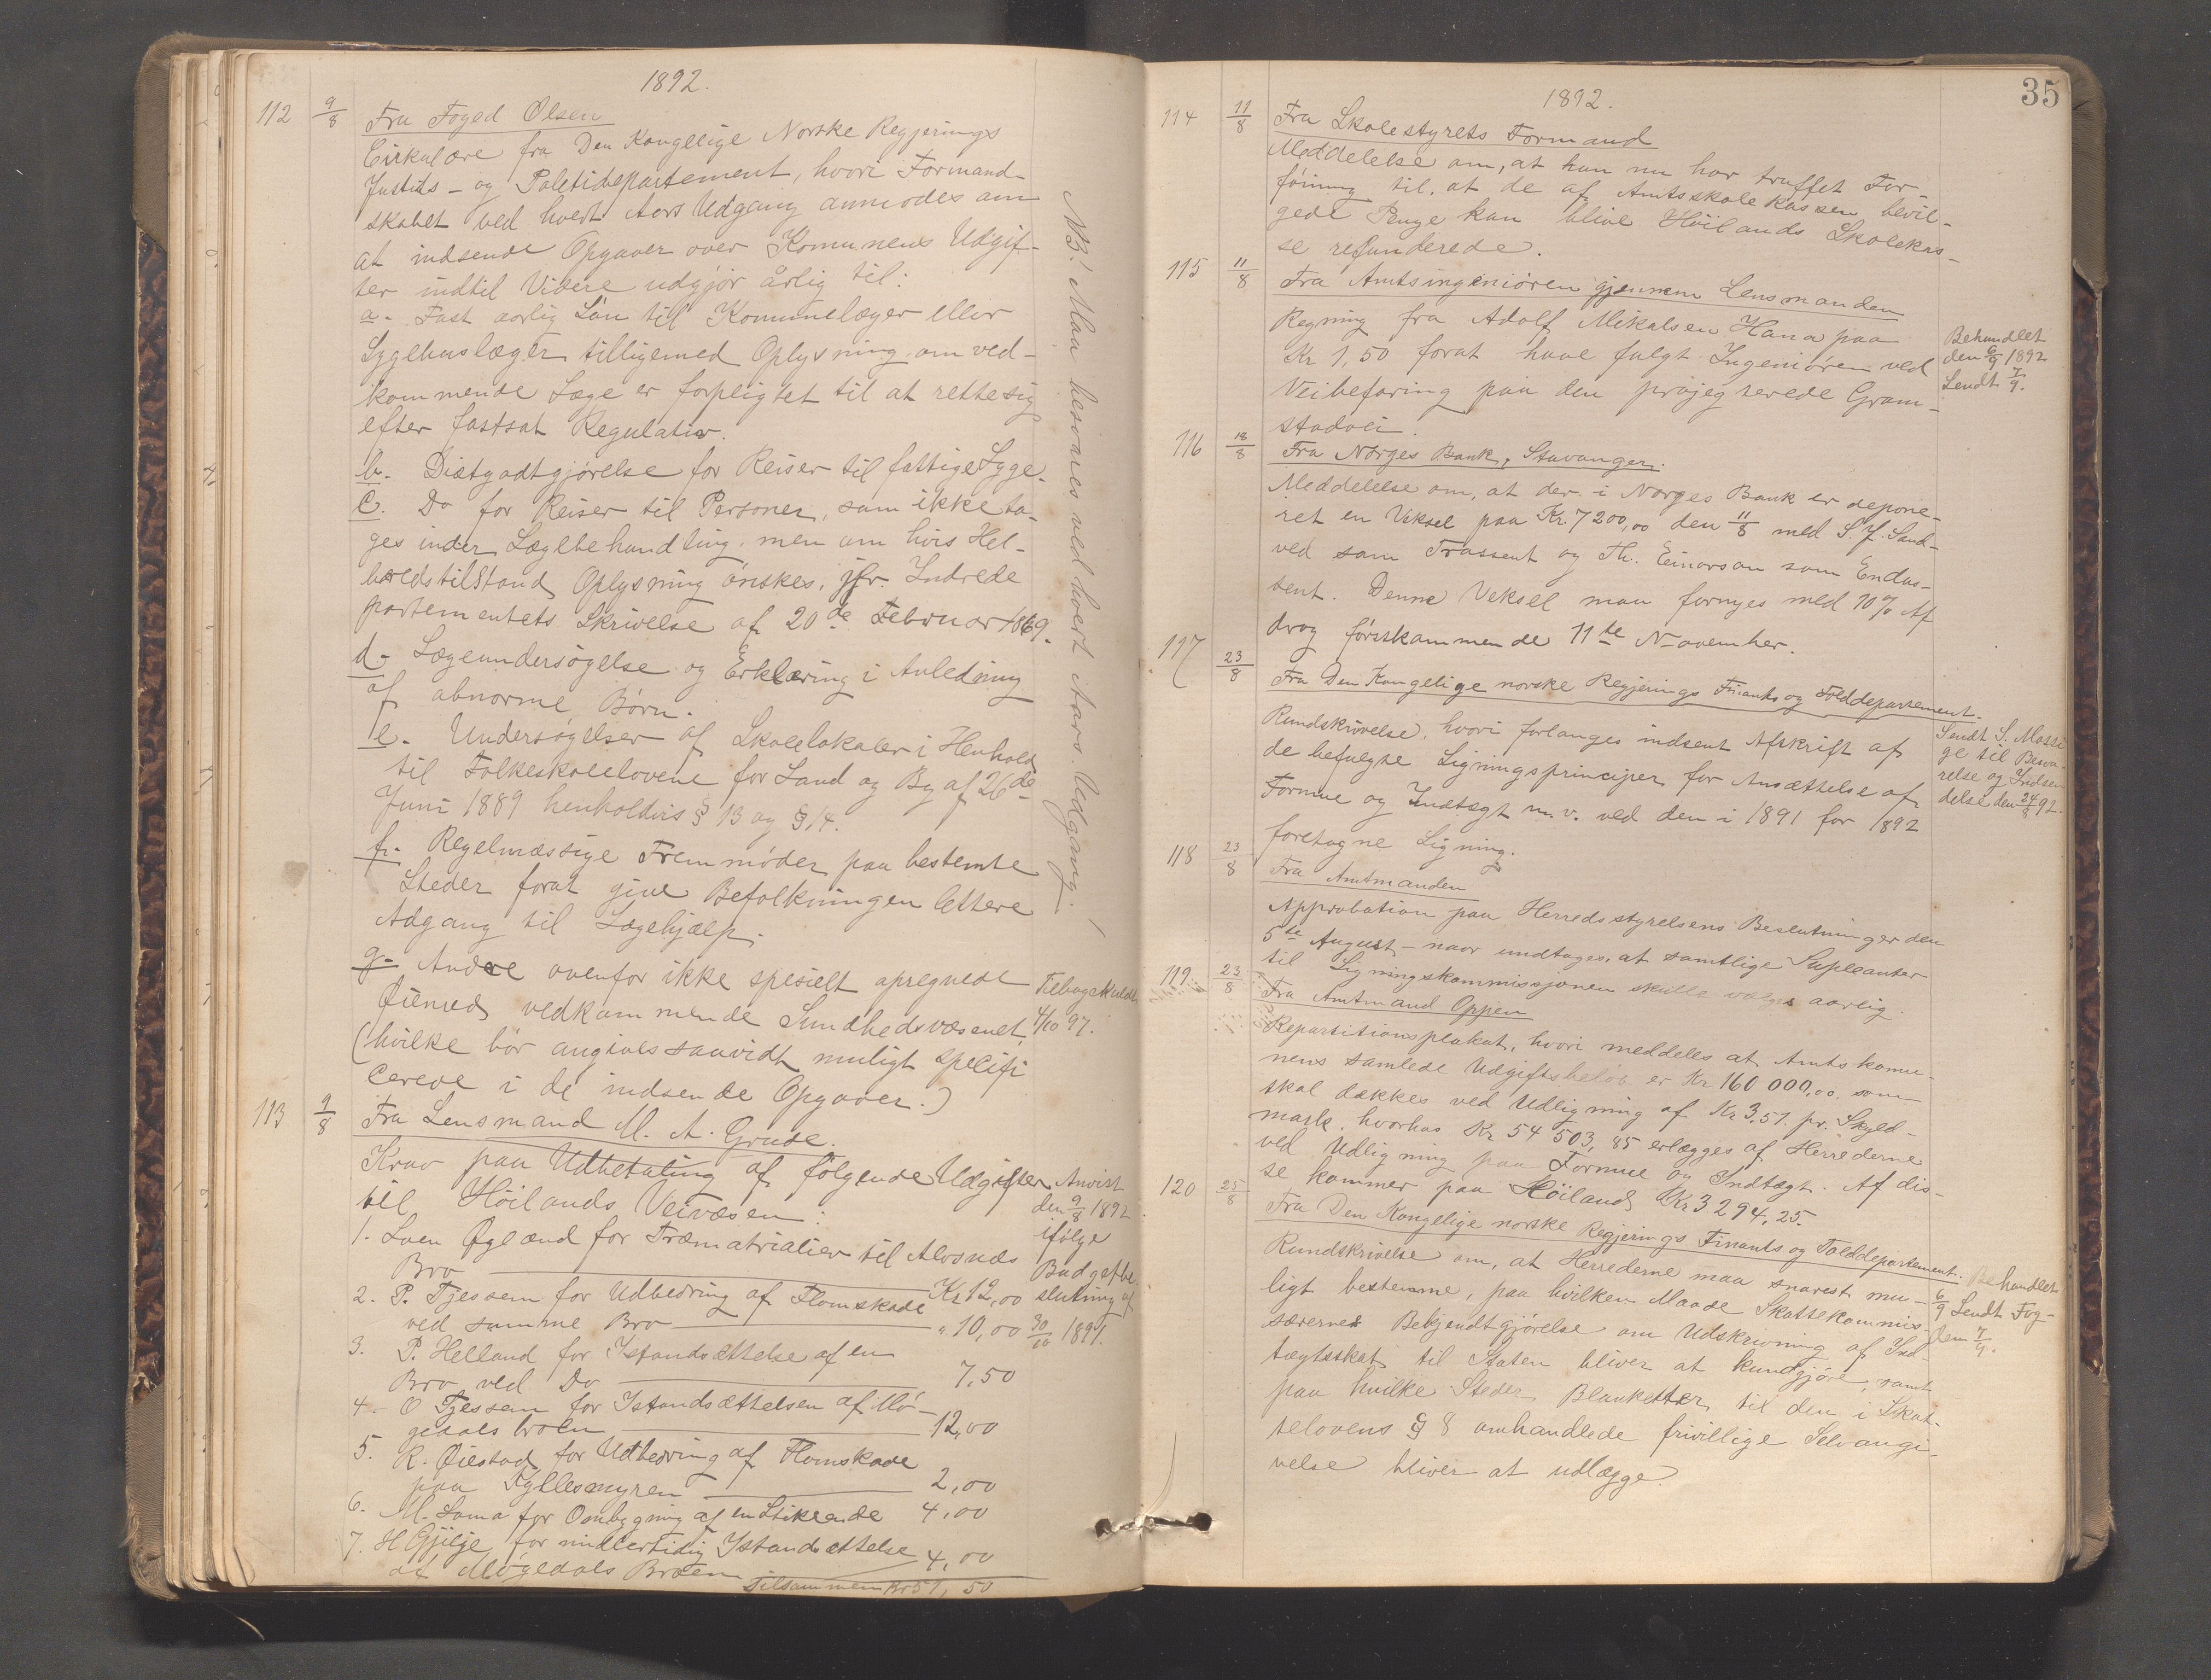 1892.
112 9/8 Fra Foged Olsen
Cirkulære fra Den Kongelige Norske Regjerings
Justits- og Politidepartement, hvori Formand-
skabet ved hvert Aars Udgang anmodes om
at indsende Opgaver over Komunens Udgif-
ter indtil Videre udgjør årlig til:
a- Fast aarlig Løn til Komunelæger eller
Sygehuslæger tilligemed Oplysning om ved-
kommende Læge er forpligtet til at rette sig
efter fastsat Regulativ.
b. Diætgodtgjørelse for Reiser til fattige Syge.
c. Do for Reiser til Personer, som ikke ta-
ges under Lægebehandling, men om hvis Hel-
bredstilstand Oplysning ønskes, jfr. Indrede
partementets Skrivelse af 20de Februar 1869.
d- Lægeundersøgelse og Erklæring i Anledning
af abnorme Børn.
e- Undersøgelser af Skolelokaler i Henhold
til Folkeskolelovene for Land og By af 26de
Juni 1889 henholdvis § 13 og § 14.
f- Regelmæssige Fremmøder paa bestemte
Steder forat give Befolkningen lettere
Adgang til Lægehjælp.
g- Andre ovenfor ikke spesielt opregnede
Øiemed vedkommende Sundhedsvæsenet,
(hvilke bör angives saavidt muligt specifi
cerede i de indsende Opgaver.)
NB! Maa besvares ved hvert Aars Udgang!
4/10 97.
113 9/8 Fra Lensmand M. A. Grude.
Krav paa Udbetaling af følgende Udgifter
til Höilands Veivæsen:
Anvist
den 9/8 1892
ifølge
Budgetbe
slutning af
30/10 1891.
1. Sven Øglænd for Træmatrialier til Alvsnæs
Bro Kr 12,00
2. P. Tjessem for Udbedring af Flomskade
ved samme Bro " 10,00
3. P. Helland for Istandsættelse af en
Bro ved Do 7,50
4- O Tjessem for Istandsættelsen af Mö-
gedals broen 12,00
5. R. Øiestad for Udbedring af Flomskade
paa Kyllesmyren 2,00
6. M. Soma for Ombygning af en Stikrende 4,00
7. H Gjilje for midlertidig Istandsættelse
af Møgedals Broen 4,00
Tilsammen Kr 51,50
35
1892.
114 11/8 Fra Skolestyrets Formand
Meddelelse om, at han nu har truffet For-
føining til, at de af Amtsskolekassen bevil-
gede Penge kan blive Höilands Skolekas-
se refunderede.
115 11/8 Fra Amtsingeniøren gjennem Lensmanden
Regning fra Adolf Mikalsen Hana paa
Kr 1,50 forat have fulgt Ingeniøren ved
Veibefaring paa den projegterede Gram-
stadvei.
Behandlet
den 6/9 1892
Sendt 7/9.
116 18/8 Fra Norges Bank, Stavanger.
Meddelelse om, at der i Norges Bank er depone-
ret en Veksel paa Kr. 7200,00 den 11/8 med S. J. Sand-
ved som Trassent og Th. Einarson som Endos-
sent. Denne Veksel maa fornyes med 10% Af
drag førstkommende 11te November.
117 23/8 Fra Den Kongelige norske Regjerings Finants og Tolddepartement.
Rundskrivelse, hvori forlanges indsent Afskrift af
de befulgte Ligningsprinciper for Ansættelse af
Formue og Indtægt m.v. ved den i 1891 for 1892
foretagne Ligning.
Sendt S. Mossi
ge til Besva-
relse og Indsen
delse den 24/8 92.
118 23/8 Fra Amtmanden
Approbation paa Herredsstyrelsens Beslutninger den
5te August - naar undtages, at samtlige Supleanter
til Ligningskommissjonen skulle vælges aarlig.
119. 23/8 Fra Amtmand Oppen
Repartitionsplakat, hvori meddeles at Amtskomu-
nens samlede Udgiftsbeløb er Kr 160 000,00. som
skal dækkes ved Udligning af Kr 3,51. pr. Skyld-
mark, hvorhos Kr 54 503,85 erlægges af Herrederne
ved Udligning paa Formue og Indtægt. Af dis-
se kommer paa Höiland Kr 3294,25.
120 25/8 Fra Den Kongelige norske Regjerings Finants og Tolddepartement.
Rundskrivelse om, at Herrederne maa snarest mu-
ligt bestemme, paa hvilken Maade Skattekommis-
særernes Bekjendtgjørelse om Udskrivning af Ind-
tægtsskat til Staten bliver at kundgjøre, samt
paa hvilke Steder Blanketter til den i Skat-
telovens § 8 omhandlede frivillige Selvangi-
velse bliver at udlægge.
Behandlet
6/9 Sendt Fog-
den 7/9.